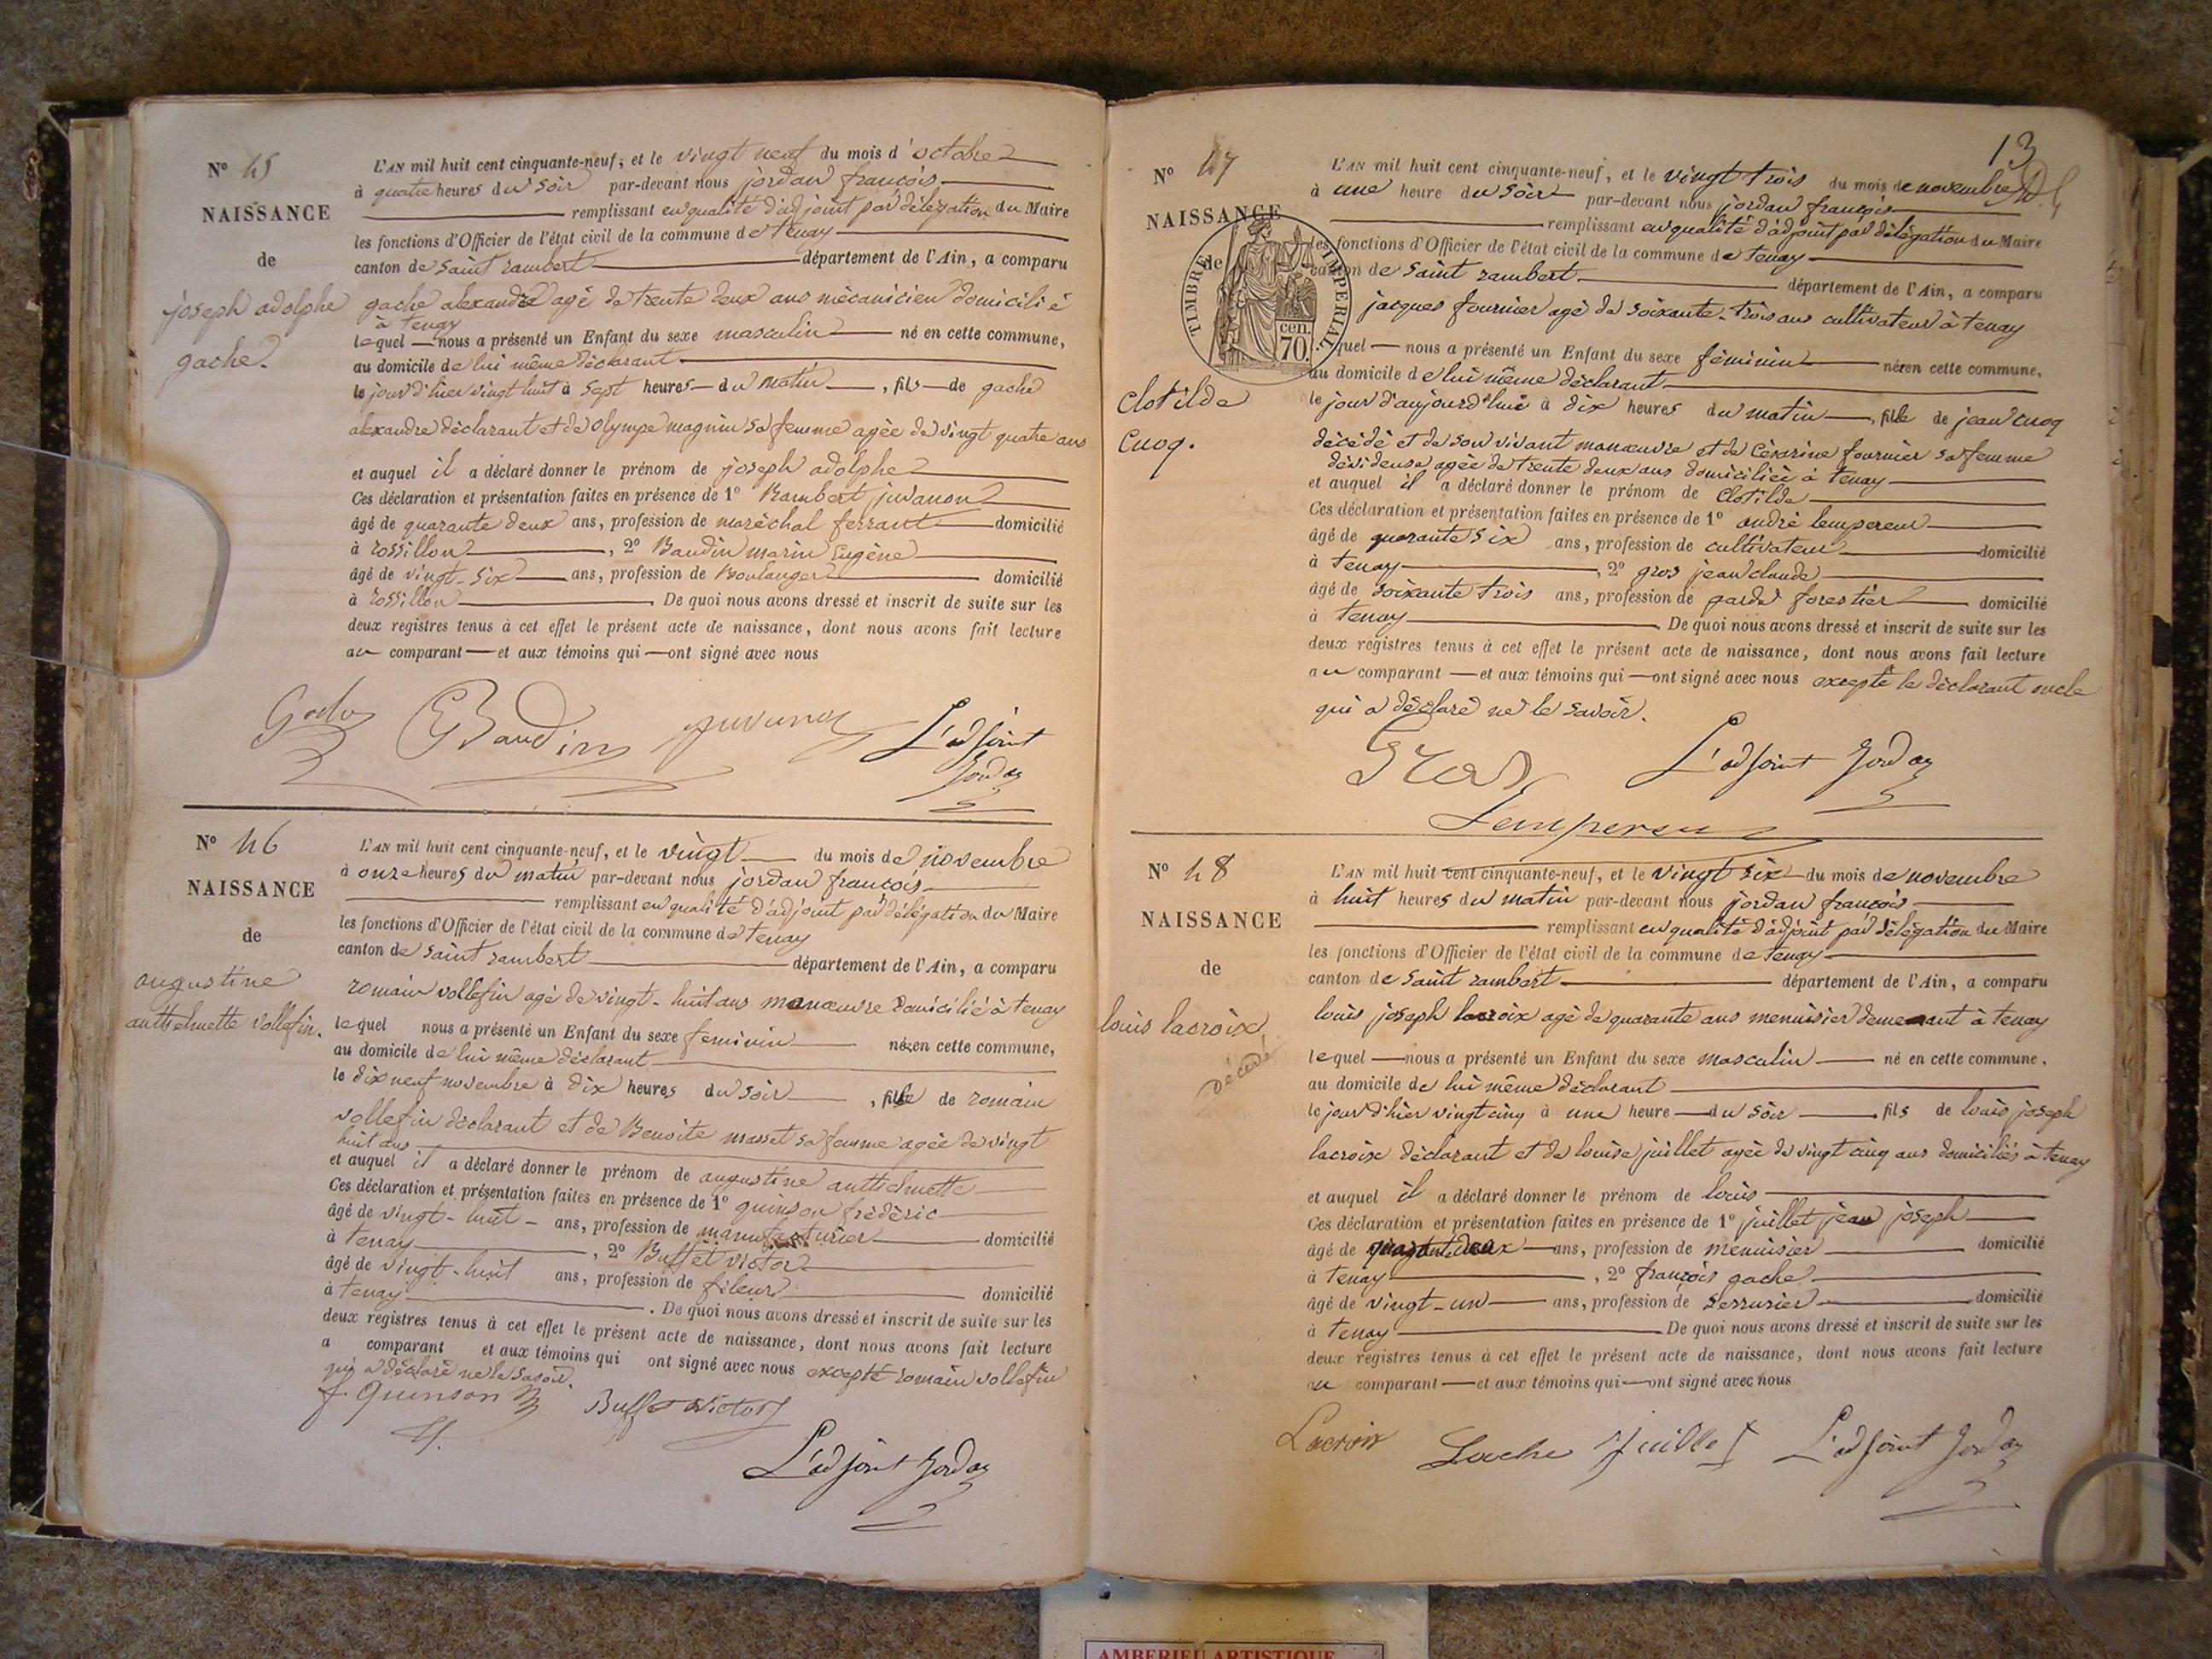 N° 45
NAISSANCE
de
joseph adolphe
gache.
L'AN mil huit cent cinquante-neuf, et le vingt neuf du mois d'octobre
à quatre heures du soir par-devant nous jordan françois
remplissant en qualité d'adjoint par délégation du Maire
les fonctions d'Officier de l'état civil de la commune de tenay
canton de saint rambert département de l'Ain, a comparu
gache alexandre agé de trente deux ans mécanicien domicilié
à tenay
lequel nous a présenté un Enfant du sexe masculin né en cette commune,
au domicile de lui même déclarant
le jour d'hier vingt huit à sept heures du matin, fils de gache
alexandre déclarant et de olympe magnin sa femme agée de vingt quatre ans
et auquel il a déclaré donner le prénom de joseph adolphe
Ces déclaration et présentation faites en présence de 1° Rambert juvanon
âgé de quarante deux ans, profession de maréchal ferrant domicilié
à rossillon, 2° Baudin marin Eugène
âgé de vingt-six ans, profession de Boulanger domicilié
à rossillon. De quoi nous avons dressé et inscrit de suite sur les
deux registres tenus à cet effet le présent acte de naissance, dont nous avons fait lecture
au comparant et aux témoins qui ont signé avec nous
E Baudin juvanon L'adjoint
Jordan
N° 46
NAISSANCE
de
augustine
anthelmette vollefin.
L'AN mil huit cent cinquante-neuf, et le vingt du mois de novembre
à onze heures du matin par-devant nous jordan françois
remplissant en qualité d'adjoint par délégation du Maire
les fonctions d'Officier de l'état civil de la commune de tenay
canton de saint rambert département de l'Ain, a comparu
romain vollefin agé de vingt-huit ans manœuvre domicilié à tenay
lequel nous a présenté un Enfant du sexe feminin née en cette commune,
au domicile de lui même déclarant
le dix neuf novembre à dix heures du soir, fille de romain
vollefin déclarant et de Benoite masset sa femme agée de vingt
huit ans
et auquel il a déclaré donner le prénom de augustine anthelmette
Ces déclaration et présentation faites en présence de 1° quinson frédéric
âgé de vingt-huit ans, profession de manufacturier domicilié
à tenay, 2° Buffet victor
âgé de vingt-huit ans, profession de fileur domicilié
à tenay. De quoi nous avons dressé et inscrit de suite sur les
deux registres tenus à cet effet le présent acte de naissance, dont nous avons fait lecture
a comparant et aux témoins qui ont signé avec nous excepté romain vollefin
qui a déclaré ne le savoir.
f. Quinson Buffet Victor
L'adjoint Jordan
13
N° 47
NAISSANCE
de
TIMBRE IMPERIAL
cen.
70.
Clotilde
Cuoq.
L'AN mil huit cent cinquante-neuf, et le vingt trois du mois de novembre
à une heure du soir par-devant nous jordan françois
remplissant en qualité d'adjoint par délégation du Maire
les fonctions d'Officier de l'état civil de la commune de tenay
canton de saint rambert département de l'Ain, a comparu
jacques fournier agé de soixante-trois ans cultivateur à tenay
quel nous a présenté un Enfant du sexe féminin née en cette commune,
au domicile de lui même déclarant
le jour d'aujourd'hui à dix heures du matin, fille de jean cuoq
décédé et de son vivant manœuvre et de Césarine fournier sa femme
dévideuse agée de trente deux ans domiciliée à tenay
et auquel il a déclaré donner le prénom de Clotilde
Ces déclaration et présentation faites en présence de 1° andré lempereur
âgé de quarante six ans, profession de cultivateur domicilié
à tenay, 2° gros jean claude
âgé de soixante trois ans, profession de garde forestier domicilié
à tenay. De quoi nous avons dressé et inscrit de suite sur les
deux registres tenus à cet effet le présent acte de naissance, dont nous avons fait lecture
au comparant et aux témoins qui ont signé avec nous excepté le déclarant
qui a déclaré ne le savoir.
Gros L'adjoint Jordan
Lempereur
N° 48
NAISSANCE
de
louis lacroix
Décédé
L'AN mil huit cent cinquante-neuf, et le vingt six du mois de novembre
à huit heures du matin par-devant nous jordan françois
remplissant en qualité d'adjoint par délégation du Maire
les fonctions d'Officier de l'état civil de la commune de tenay
canton de saint rambert département de l'Ain, a comparu
louis joseph lacroix agé de quarante ans menuisier demeurant à tenay
lequel nous a présenté un Enfant du sexe masculin né en cette commune.
au domicile de lui même déclarant
le jour d'hier vingt cinq à une heure du soir, fils de louis joseph
lacroix déclarant et de louise juillet agée de vingt cinq ans domiciliés à tenay
et auquel il a déclaré donner le prénom de louis
Ces déclaration et présentation faites en présence de 1° juillet jean joseph
âgé de ans, profession de menuisier domicilié
à tenay, 2° françois gache
âgé de vingt-un ans, profession de serrurier domicilié
à tenay. De quoi nous avons dressé et inscrit de suite sur les
deux registres tenus à cet effet le présent acte de naissance, dont nous avons fait lecture
au comparant et aux témoins qui ont signé avec nous
Lacroix Gache Juillet L'adjoint Jordan
AMBERIEU ARTISTIQUE